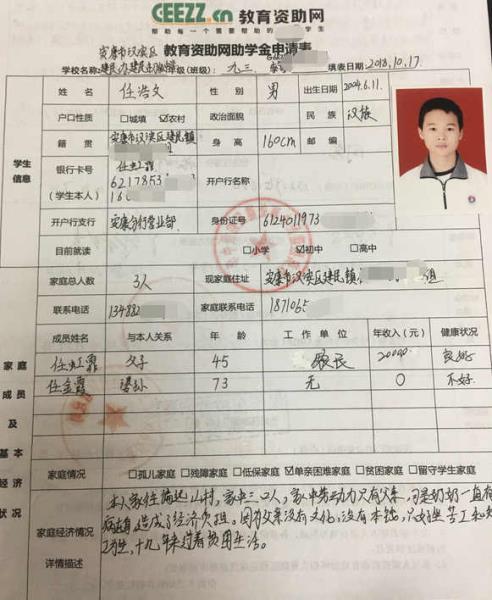 GEEZZ.cn 教育资助网
帮助每一个需要帮助的 学生
安康市汉滨区 教育资助网助学金申请表
学校名称: 年级(班级): 九三 填表日期: 2018.10.17
学生信息
姓名 任浩文 性别 男 出生日期 2004.6.11.
户口性质 □城镇 ☑农村 政治面貌 民族 汉族
籍贯 安康市汉滨区建民镇 身高 160cm 邮编
银行卡号 (学生本人) 6217853 开户行名称
开户行支行 安康分行营业部 身份证号 6124011973
目前就读 □小学 ☑初中 □高中
家庭成员及基本经济状况
家庭总人数 3人 现家庭住址 安康市汉滨区建民镇 组
联系电话 134882 家庭联系电话 1871065
成员姓名 与本人关系 年龄 工作单位 年收入(元) 健康状况
父子 45 农民 20000 良好
任金霞 婆孙 73 无 0 不好
家庭情况 □孤儿家庭 □残障家庭 □低保家庭 ☑单亲困难家庭 □贫困家庭 □留守学生家庭
家庭经济情况详情描述
本人家住偏远山村,家中三口人,家中劳动力只有父亲,可是奶奶一直有
病 造成了经济负担。因为父亲没有文化,没有本钱,只
十几年来过着贫困生活。